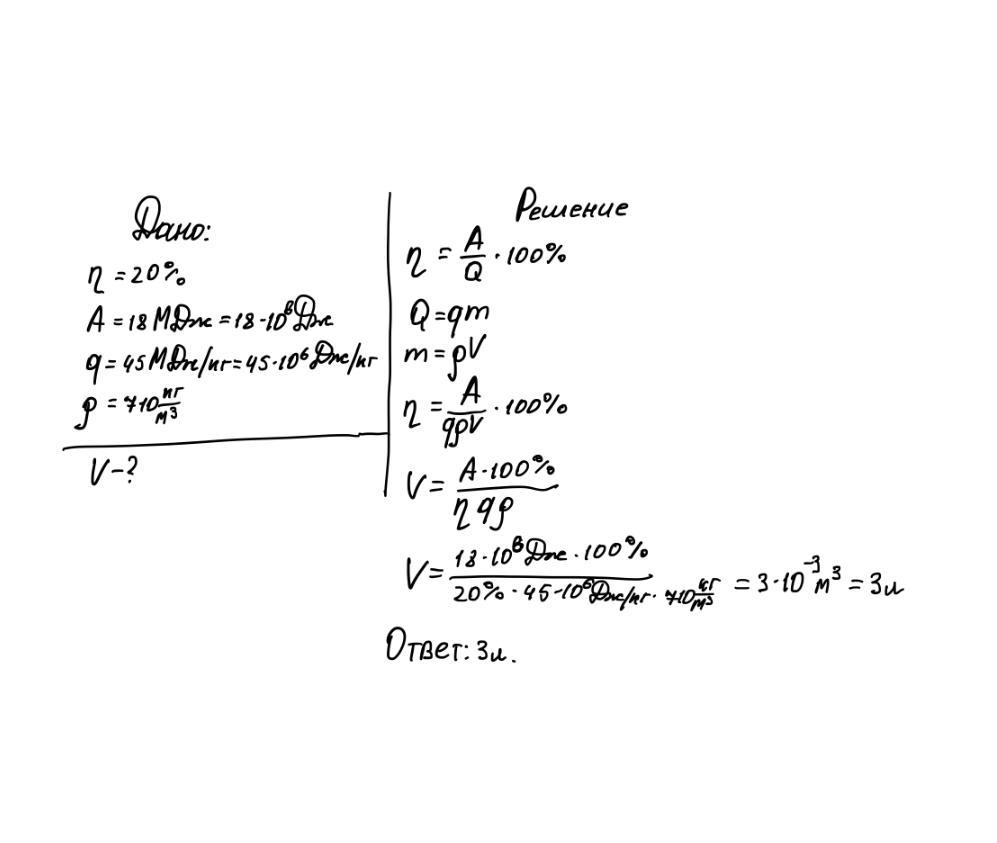 Дано:
η = 20%
A = 18 МДж = 18·10⁶ Дж
q = 45 МДж/кг = 45·10⁶ Дж/кг
ρ = 710 кг/м³
V – ?
Решение
η = A/Q · 100%
Q = qm
m = ρV
η = A/qρV · 100%
V = A·100%/ηqρ
V = 18·10⁶ Дж · 100%/20% · 45·10⁶ Дж/кг · 710 кг/м³ = 3·10⁻³ м³ = 3л
Ответ: 3л.